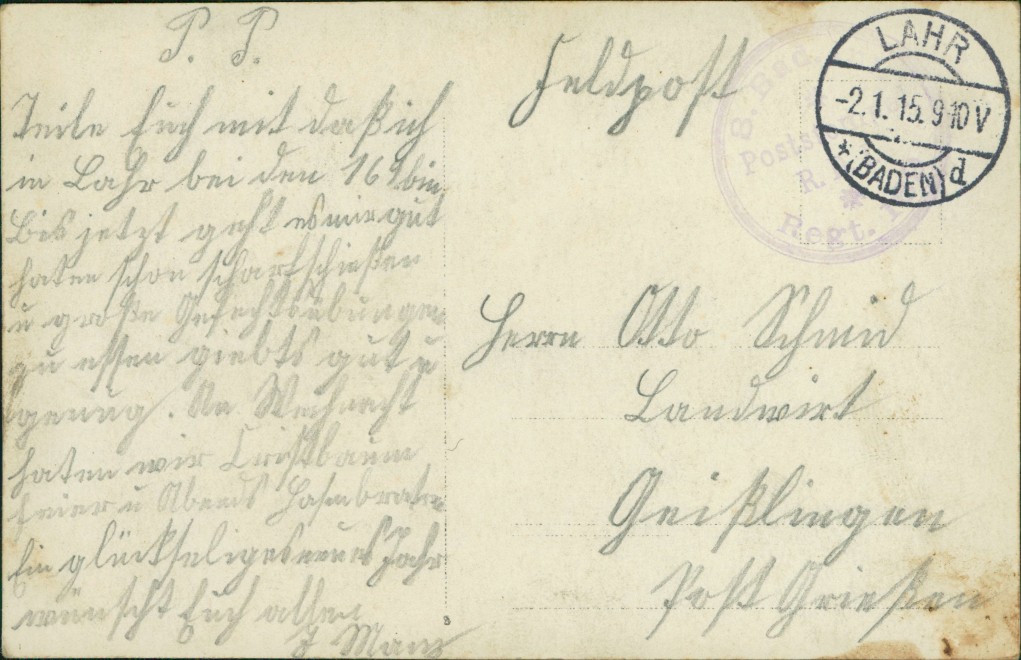 P. P.
Teile Euch mit daß ich
in Lahr bei den 169 bin
Bis jetzt geht es mir gut
haten schon scharfschießen
u große Gefechtsübungen
zu essen giebts gut u
genug. An Weihnacht
haten wir Cristbaum
feier u Abends Hasenbraten
Ein glückseliges neues Jahr
wünscht Euch allen
J Manz
Feldpost
LAHR
-2.1.15. 9-10 V
*(BADEN) d
8. Bad.
Posts
R.
Regt.
Herrn Otto Schmid
Landwirt
Geißlingen
Post Grießen